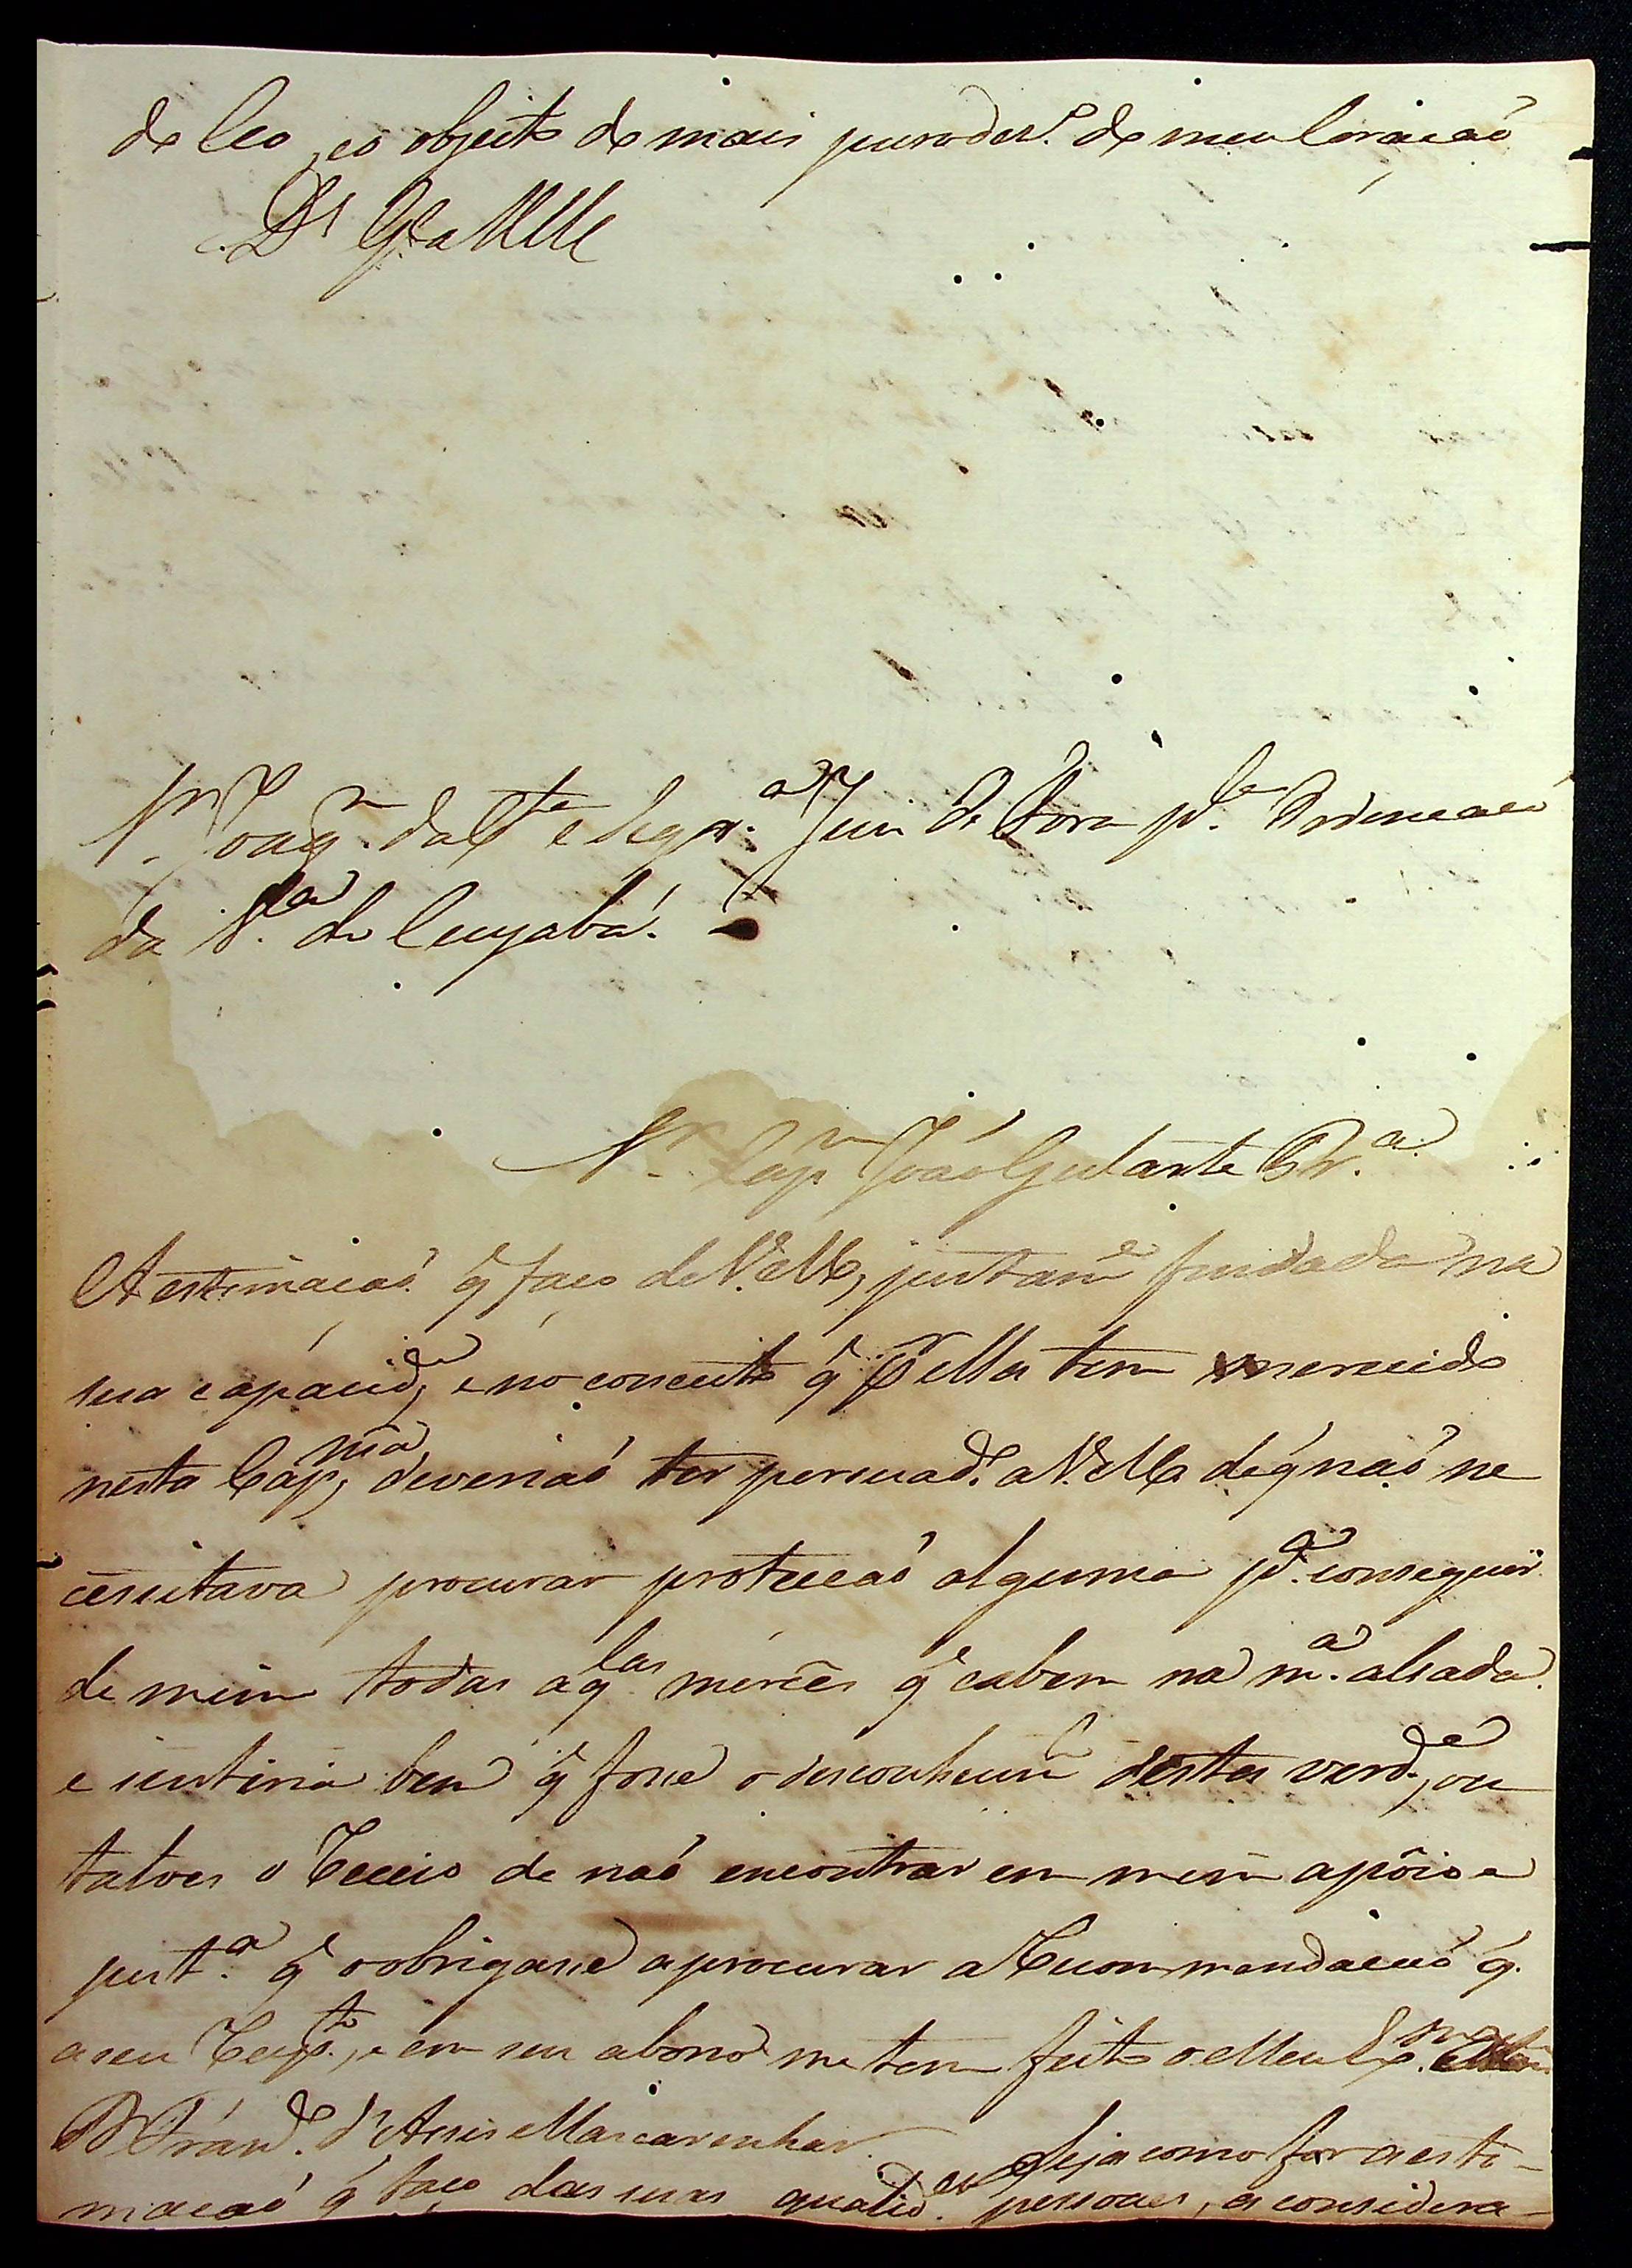 de Ceo, eo objecto do mais puro der.º do meu Coraçaõ
D.s G.e a V M.ce
S.r Joaq.m da C.ta e Seqr.a Juiz de Fora p.la Ordenaçaõ
da V.a do Cuyabá.
S.r Cap.m Joaõ Gularte Pr.a
A estimaçaõ q faço de V.M.ce, justam.e fundada na
sua capacid.e, e no conceito q p.r ella tem merecido
nesta Cap.nia, deveriaõ ter persuad.o a V.M.ce de q naõ ne
cessitava procurar protecçaõ alguma p.a conseguir
de mim todas aq.las mercês q cabem na m.a alsada.
e sentiria bem q fosse o desconhecim.to desta verd.e, ou
talves o receio de naõ encontrar em mim apôio e
just.a q o obrigasse a procurar a recommendaçaõ q.
a seu resp.to, e em seu abono me tem feito o Meu Ex.mo
D. Fran.co d'Assis Mascarenhas. Seja como for a esti-
maçaõ q faço das suas qualid.es pessoaes, a considera-